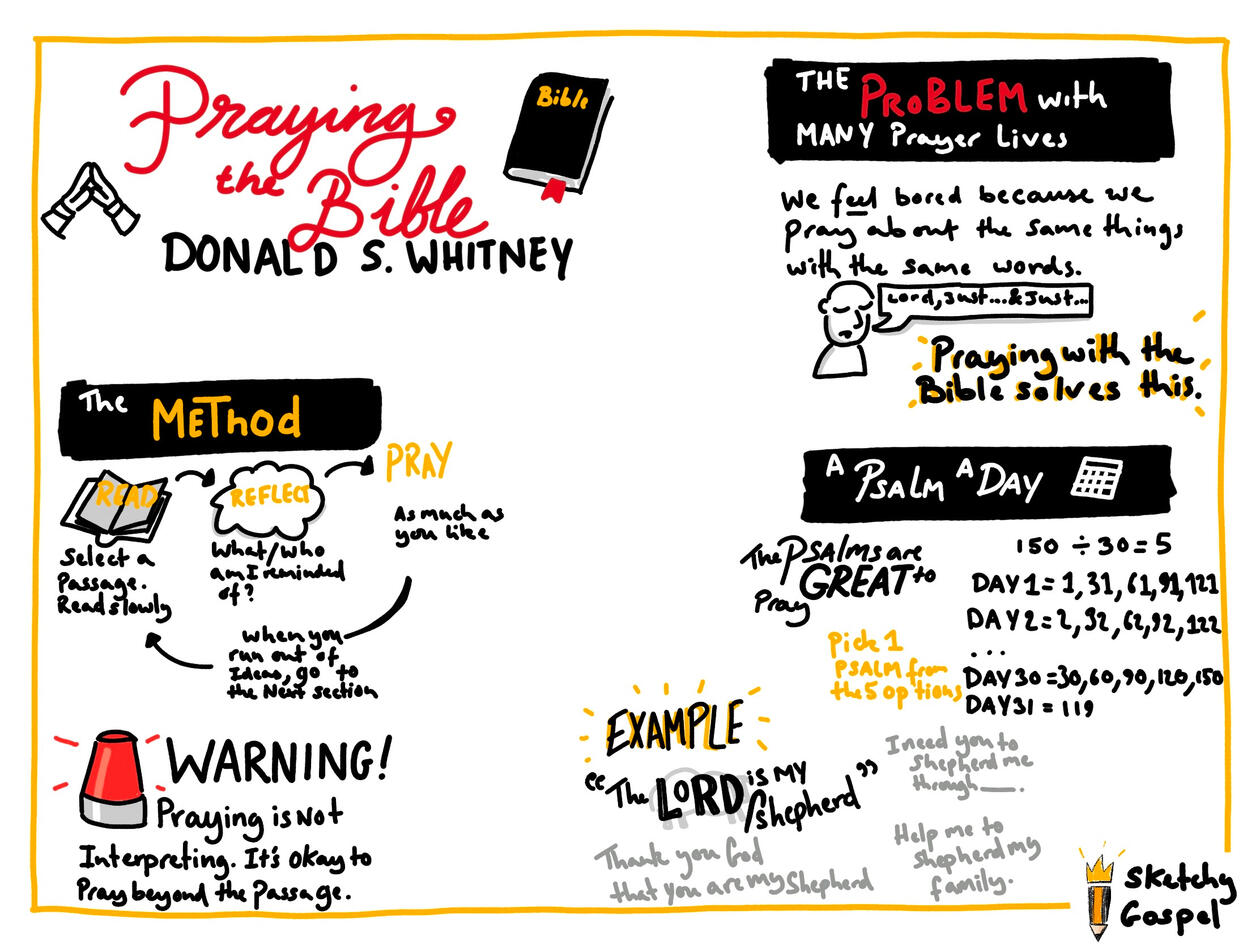 Praying
the Bible
DONALD S. WHITNEY
Bible
THE PROBLEM with
MANY Prayer Lives
We feel bored because we
pray about the same things
with the same words.
Lord, Just...& Just...
Praying with the
Bible solves this.
The METhod
READ
REFLECT
PRAY
Select a
Passage.
Read slowly
What/Who
am I reminded
of?
As much as
you like
When you
run out of
Ideas, go to
the Next section
A PSALM A DAY
The PSALMs are
GREAT to
Pray
Pick 1
PSALM from
the 5 options
150 ÷ 30 = 5
DAY 1 = 1, 31, 61, 91, 121
DAY 2 = 2, 32, 62, 92, 122
...
DAY 30 = 30, 60, 90, 120, 150
DAY 31 = 119
WARNING!
Praying is Not
Interpreting. It's okay to
Pray beyond the Passage.
EXAMPLE
"The LORD is MY
shepherd"
Thank you God
that you are my Shepherd
I need you to
shepherd me
through ___.
Help me to
shepherd my
family.
Sketchy
Gospel